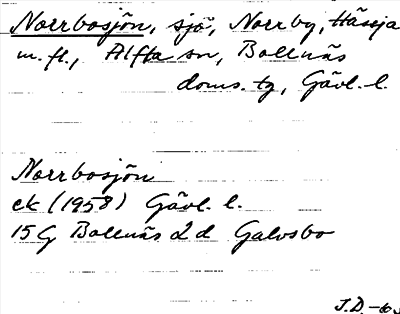 Norrbosjön, sjö, Norrby, Hässja
m.fl., Alfta sn, Bollnäs
doms. tg, Gävl. l.
Norrbosjön
ek (1958) Gävl. l.
15G Bollnäs 2d Galvsbo
J.D. -60